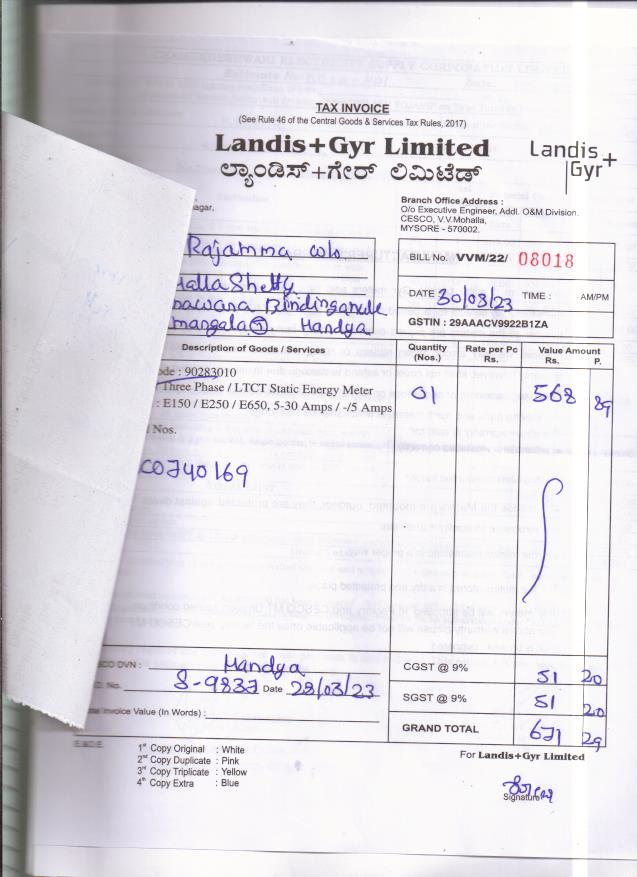 TAX INVOICE
(See Rule 46 of the Central Goods & Services Tax Rules, 2017)
Landis+Gyr Limited
ಲ್ಯಾಂಡಿಸ್+ಗೇರ್ ಲಿಮಿಟೆಡ್
Landis+
Gyr
nagar,
Branch Office Address :
O/o Executive Engineer, Addl. O&M Division.
CESCO, V.V.Mohalla,
MYSORE - 570002.
Rajamma w/o
Shetty
Mandya
BILL No. VVM/22/ 08018
DATE 30/03/23 TIME : AM/PM
GSTIN : 29AAACV9922B1ZA
Description of Goods / Services
Quantity (Nos.)
Rate per Pc Rs.
Value Amount Rs. P.
ode : 90283010
Three Phase / LTCT Static Energy Meter
: E150 / E250 / E650, 5-30 Amps / -/5 Amps
01
568 89
l Nos.
C0740169
CO DVN : Mandya
No. S-9837 Date 29/03/23
Invoice Value (In Words) :
CGST @ 9% 51 20
SGST @ 9% 51 20
GRAND TOTAL 671 29
E.&O.E.
1st Copy Original : White
2nd Copy Duplicate : Pink
3rd Copy Triplicate : Yellow
4th Copy Extra : Blue
For Landis+Gyr Limited
Signature